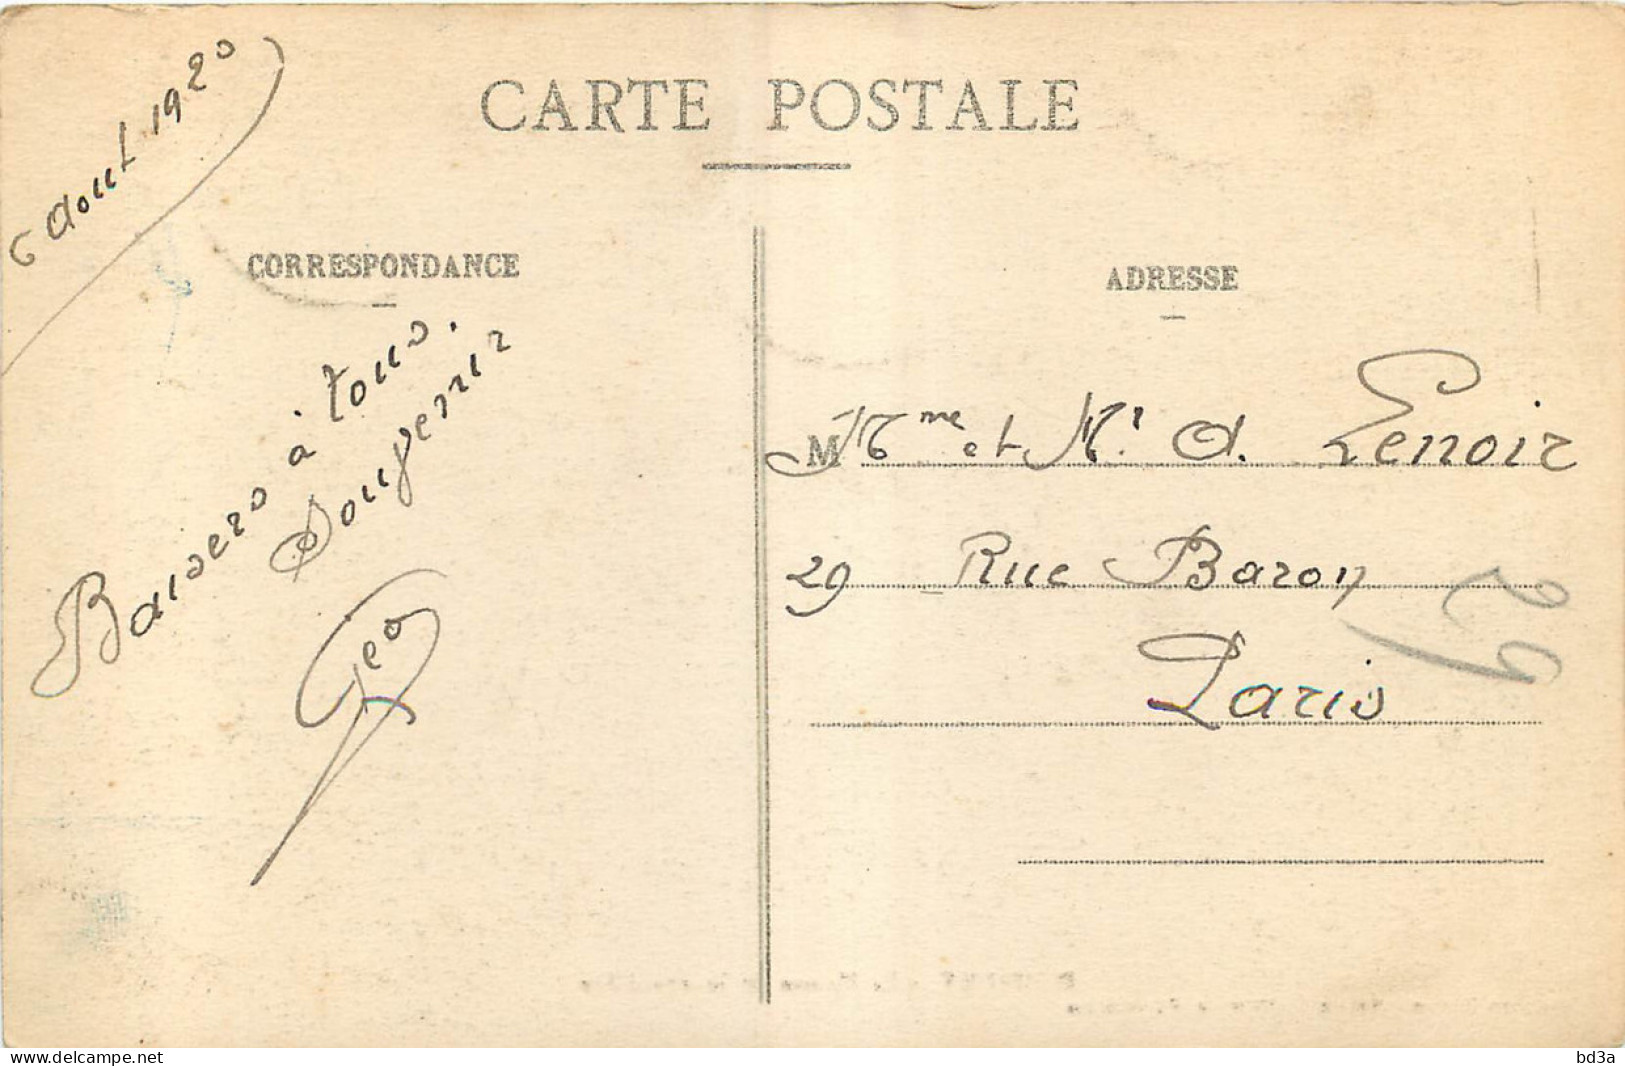 6 Aout 1920
CARTE POSTALE
CORRESPONDANCE
ADRESSE
Baisers à tous.
Souvenir
Geo
M Mme et Mr A. Lenoir
29 Rue Baron
Paris
29
www.delcampe.net
bd3a